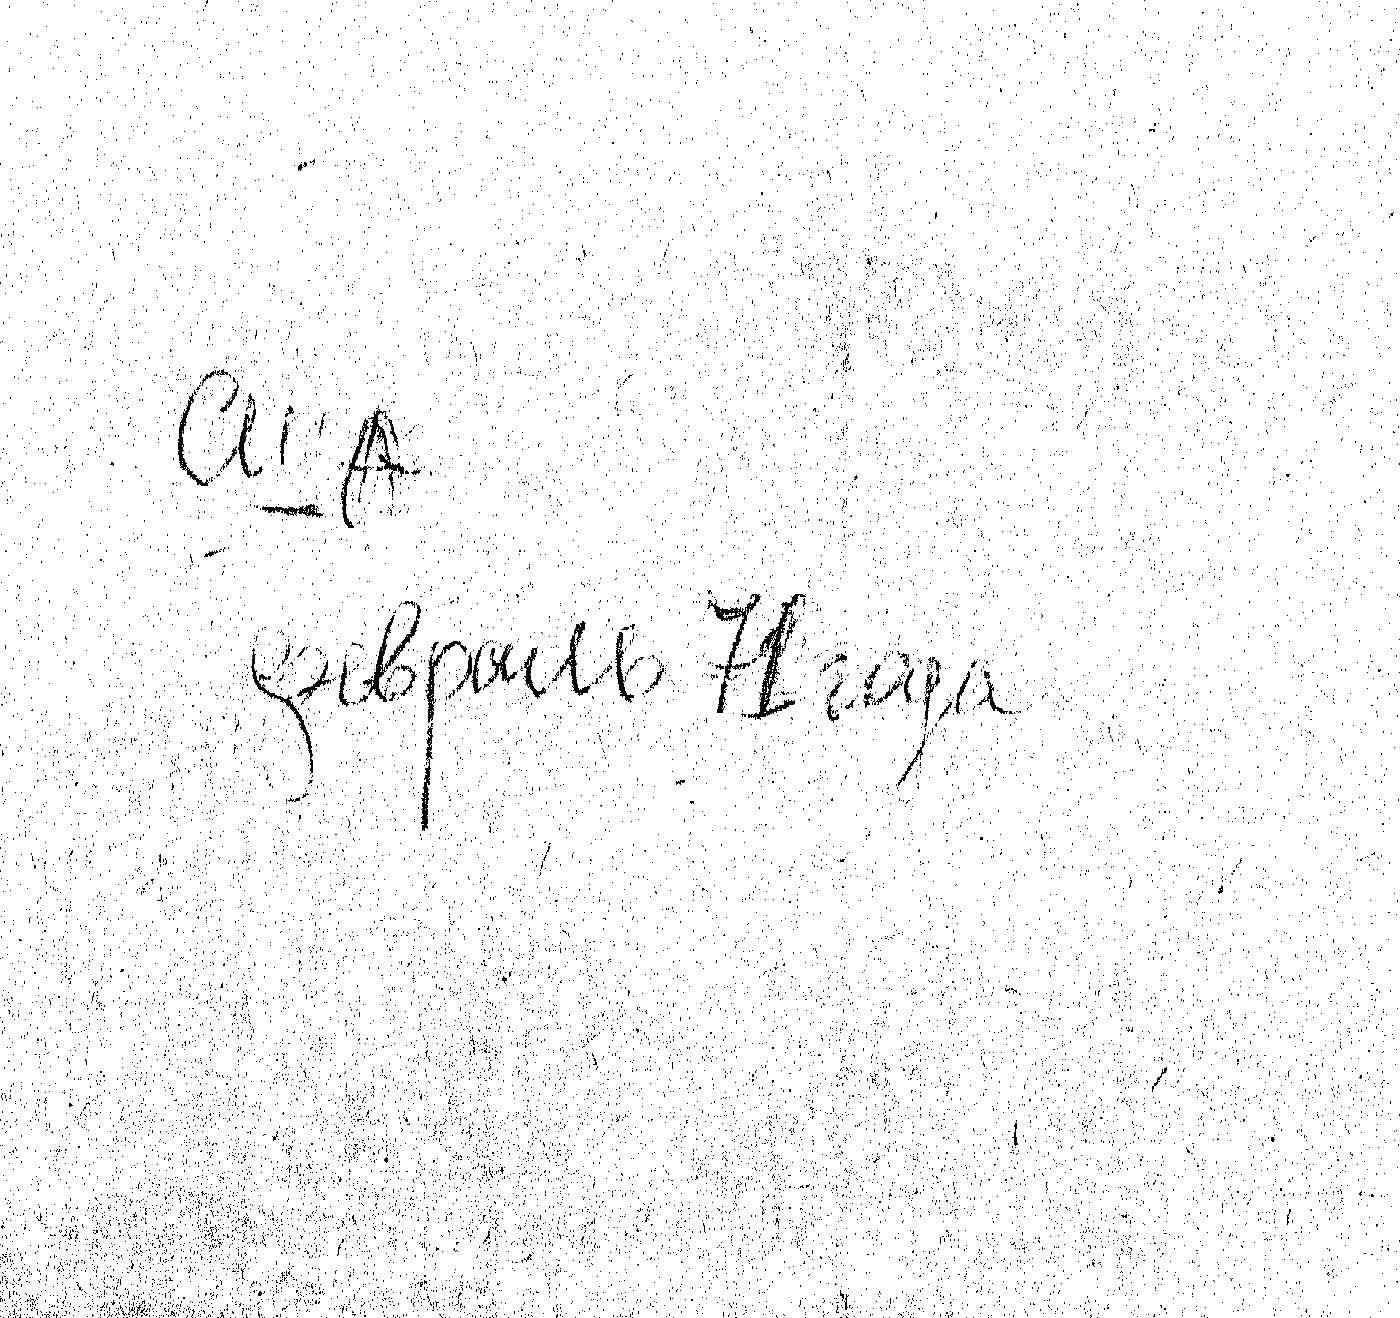 США
февраль 71 года